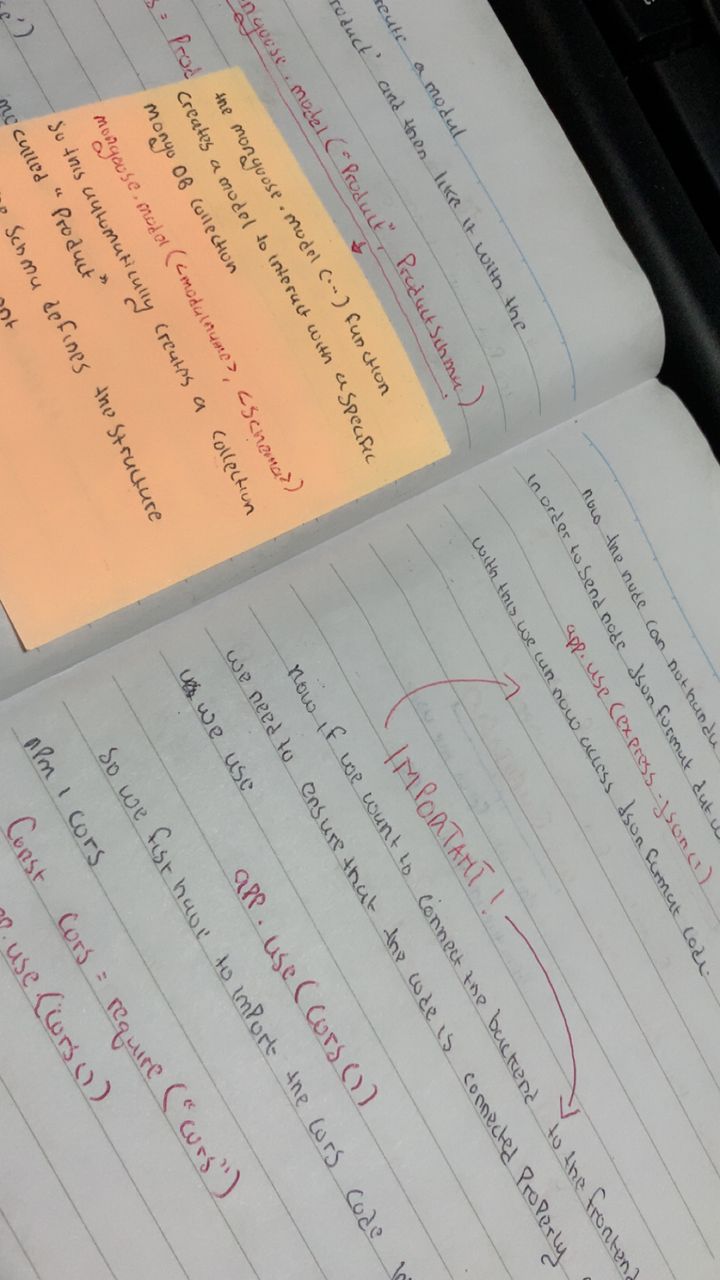 reate a modul
roduct' and then like it with the
ongoose.model("Product", ProductSchma)
s = Prod
se')
the mongoose.model(...) function
creates a model to interact with a specific
mongo DB collection
mongoose.model(<modulname>, <schema>)
so this automatically creates a collection
me called "Product"
Schma defines the structure
now the node can not handle
in order to send node Json format dat
app.use(express.json())
with this we can now access Json format code.
IMPORTANT!
now if we want to connect the backend to the frontend
we need to ensure that the code is connected Properly
we use app.use(cors())
so we fist have to import the cors code
npm i cors
Const cors = require("cors")
pp.use(cors())